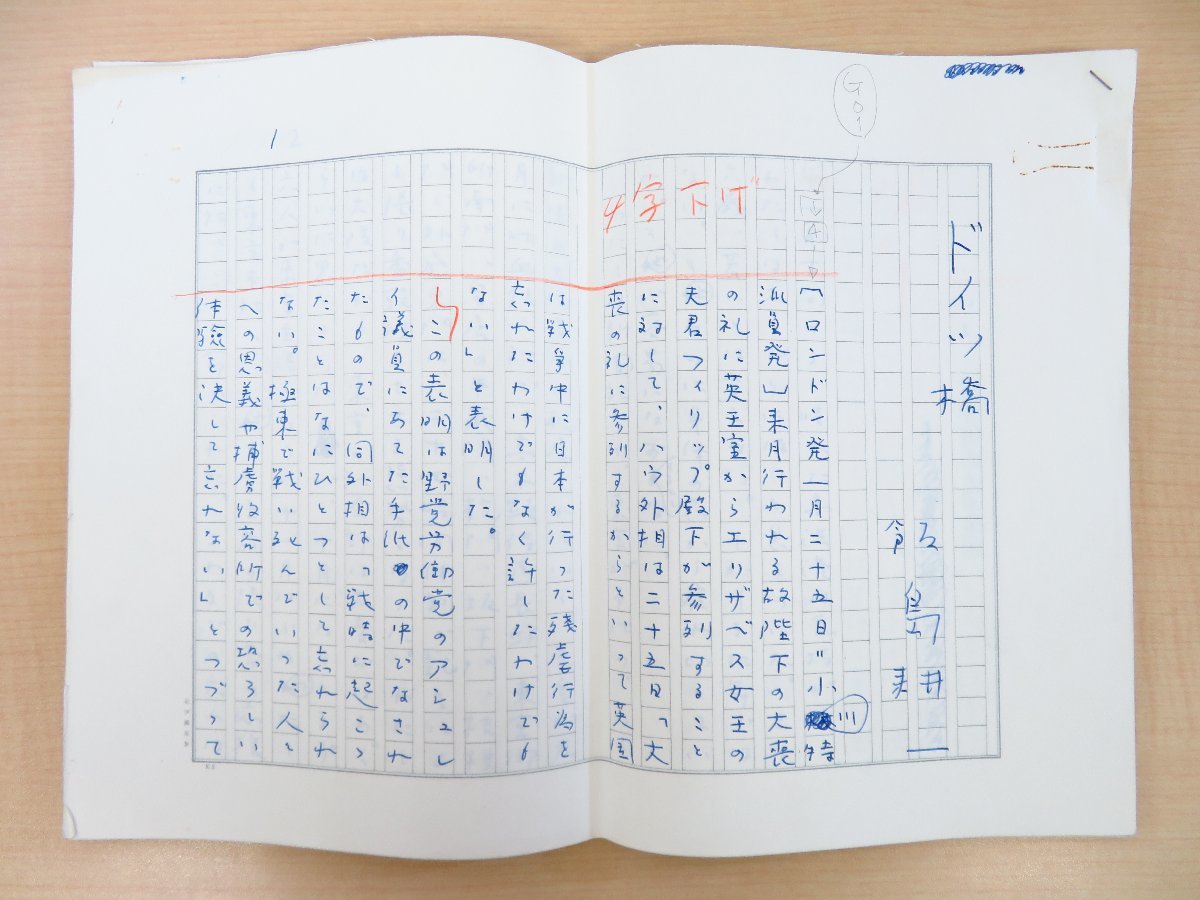 ドイツ橋
飯島耕一
G01
4
4字下げ
〔ロンドン発一月二十五日〃小川特
派員発〕来月行われる故陛下の大喪
の礼に英王室からエリザベス女王の
夫君フィリップ殿下が参列すること
に対して、ハウ外相は二十五日「大
喪の礼に参列するからといって英国
は戦争中に日本が行った残虐行為を
忘れたわけでもなく許したわけでも
ない」と表明した。
この表明は野党労働党のアシュレ
イ議員にあてた手紙の中でなされ
たもので、同外相は「戦時に起こっ
たことはなにひとつとして忘れられ
ない。極東で戦い死んでいった人々
への恩義や捕虜収容所での恐ろしい
体験を決して忘れない」とつづって
1